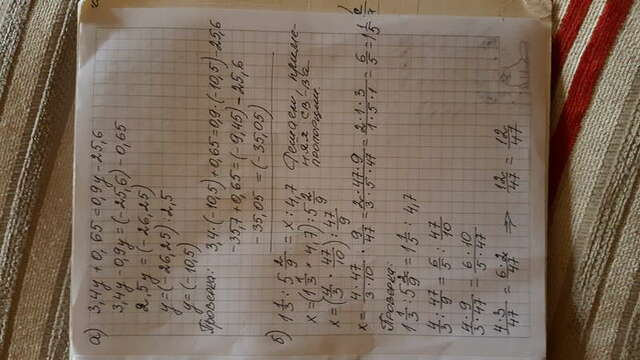 а) 3,4y + 0,65 = 0,9y - 25,6
3,4y - 0,9y = (-25,6) - 0,65
2,5y = (-26,25)
y = (-26,25) : 2,5
y = (-10,5)
Проверка: 3,4 · (-10,5) + 0,65 = 0,9 · (-10,5) - 25,6
-35,7 + 0,65 = (-9,45) - 25,6
-35,05 = (-35,05)
б) 1 1/3 : 5 2/9 = x : 4,7 Решаем, приме-
няя св-ва
пропорции.
x = (1 1/3 · 4,7) : 5 2/9
x = (4/3 · 47/10) : 47/9
x = 4·47/3·10 · 9/47 = 2·47·9/3·5·47 = 2·1·3/1·5·1 = 6/5 = 1 1/5
Проверка:
1 1/3 : 5 2/9 = 1 1/5 : 4,7
4/3 : 47/9 = 6/5 : 47/10
4·9/3·47 = 6·10/5·47
4·3/47 = 6·2/47 ⇒ 12/47 = 12/47